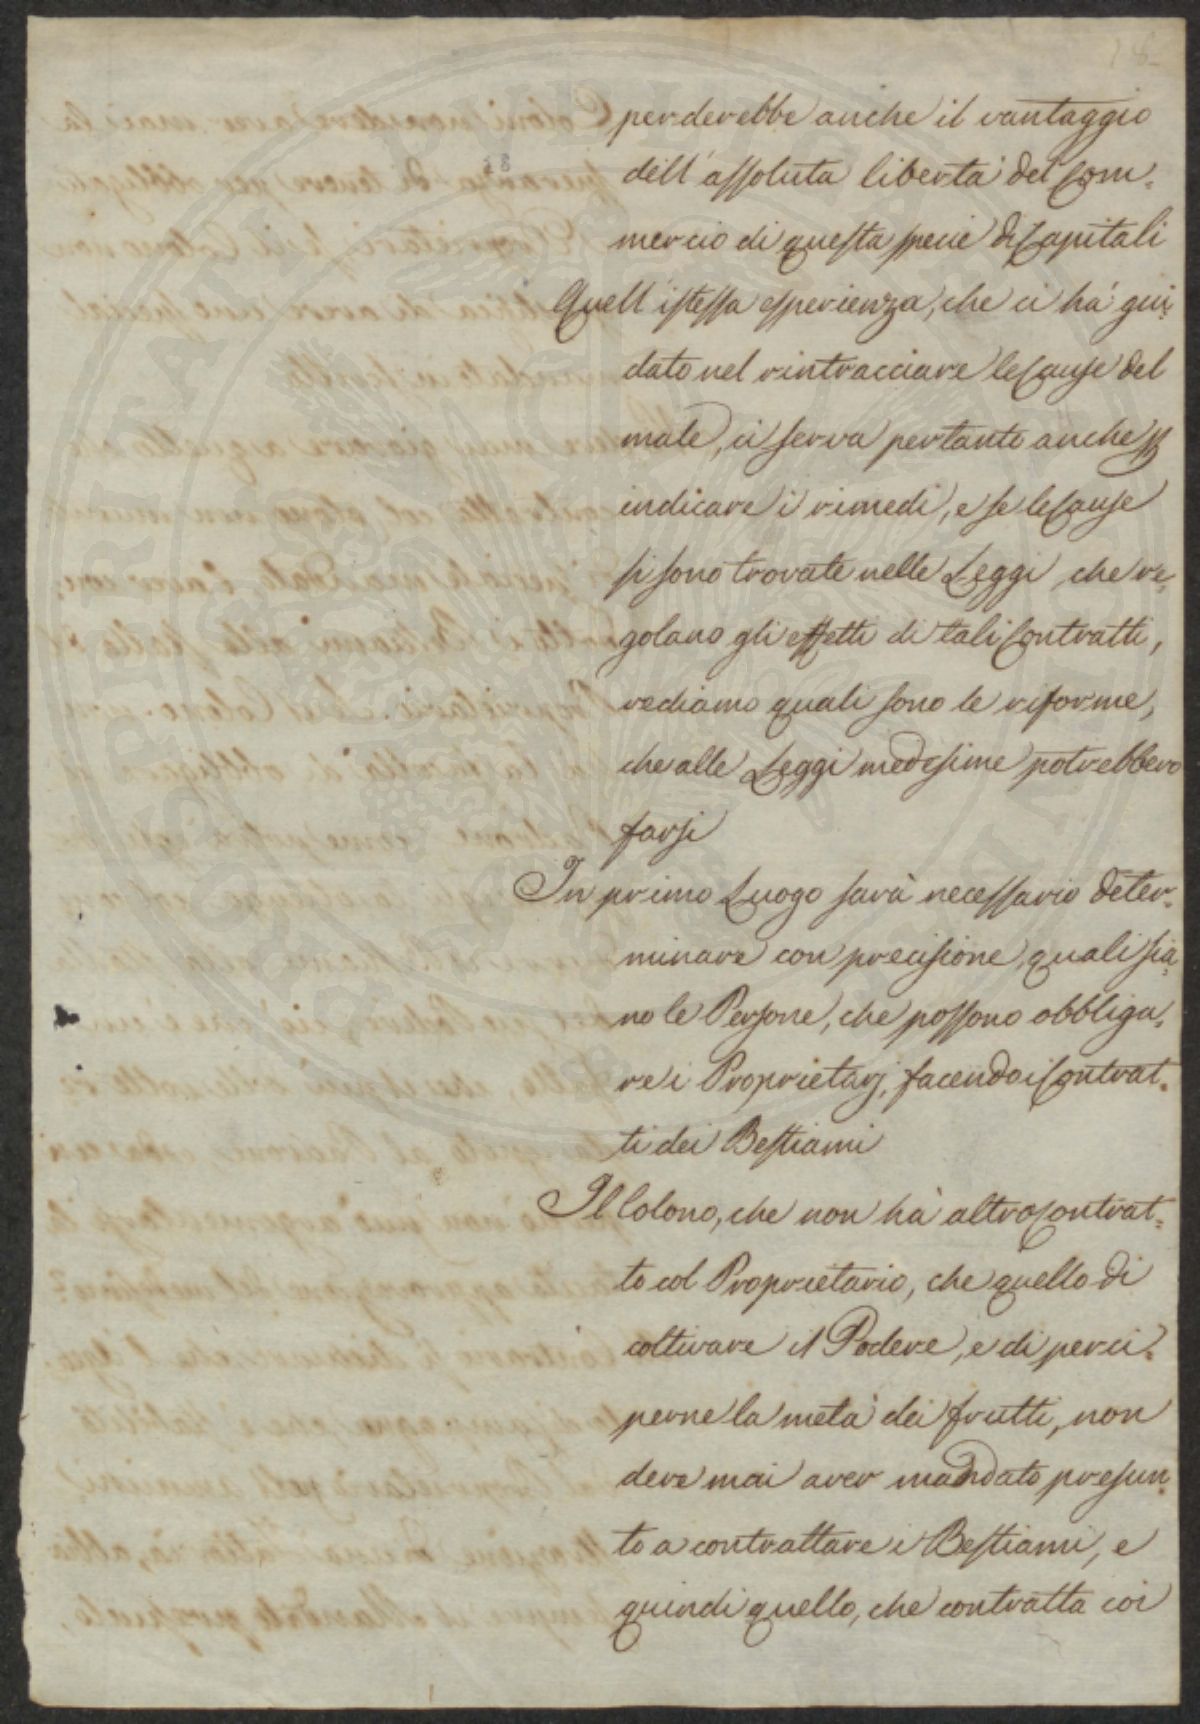 perderebbe anche il vantaggio
dell'assoluta libertà del Com=
mercio di questa specie di Capitali
Quell'istessa esperienza, che ci hà gui=
dato nel rintracciare le Cause del
male, ci serva pertanto anche p
indicare i rimedi, e se le Cause
si sono trovate nelle Leggi, che re=
golano gli effetti di tali Contratti,
vediamo quali sono le riforme,
che alle Leggi medesime potrebbero
farsi
In primo Luogo sarà necessario deter=
minare con precisione, quali sia=
no le Persone, che possono obbliga=
re i Proprietarj, facendo i Contrat=
ti dei Bestiami
Il Colono, che non hà altro Contrat=
to col Proprietario, che quello di
coltivare il Podere, e di perci=
perne la metà dei frutti, non
deve mai aver mandato presun=
to a contrattare i Bestiami, e
quindi quello, che contratta coi